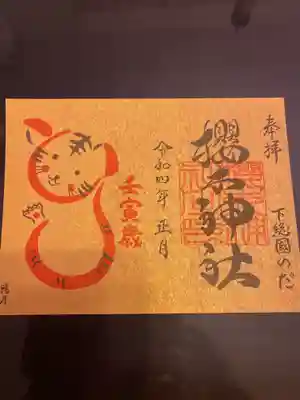 奉拝
下総国のだ
櫻木神社
令和四年 正月
壬寅歳